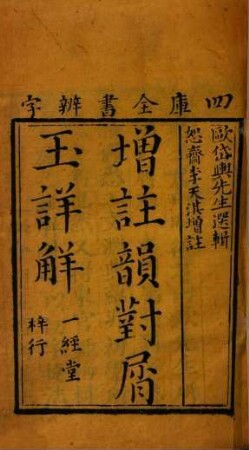 四庫全書辨字
歐岱輿先生選輯
恕齋李天淇增註
增註韻對屑
玉詳解
一經堂
梓行